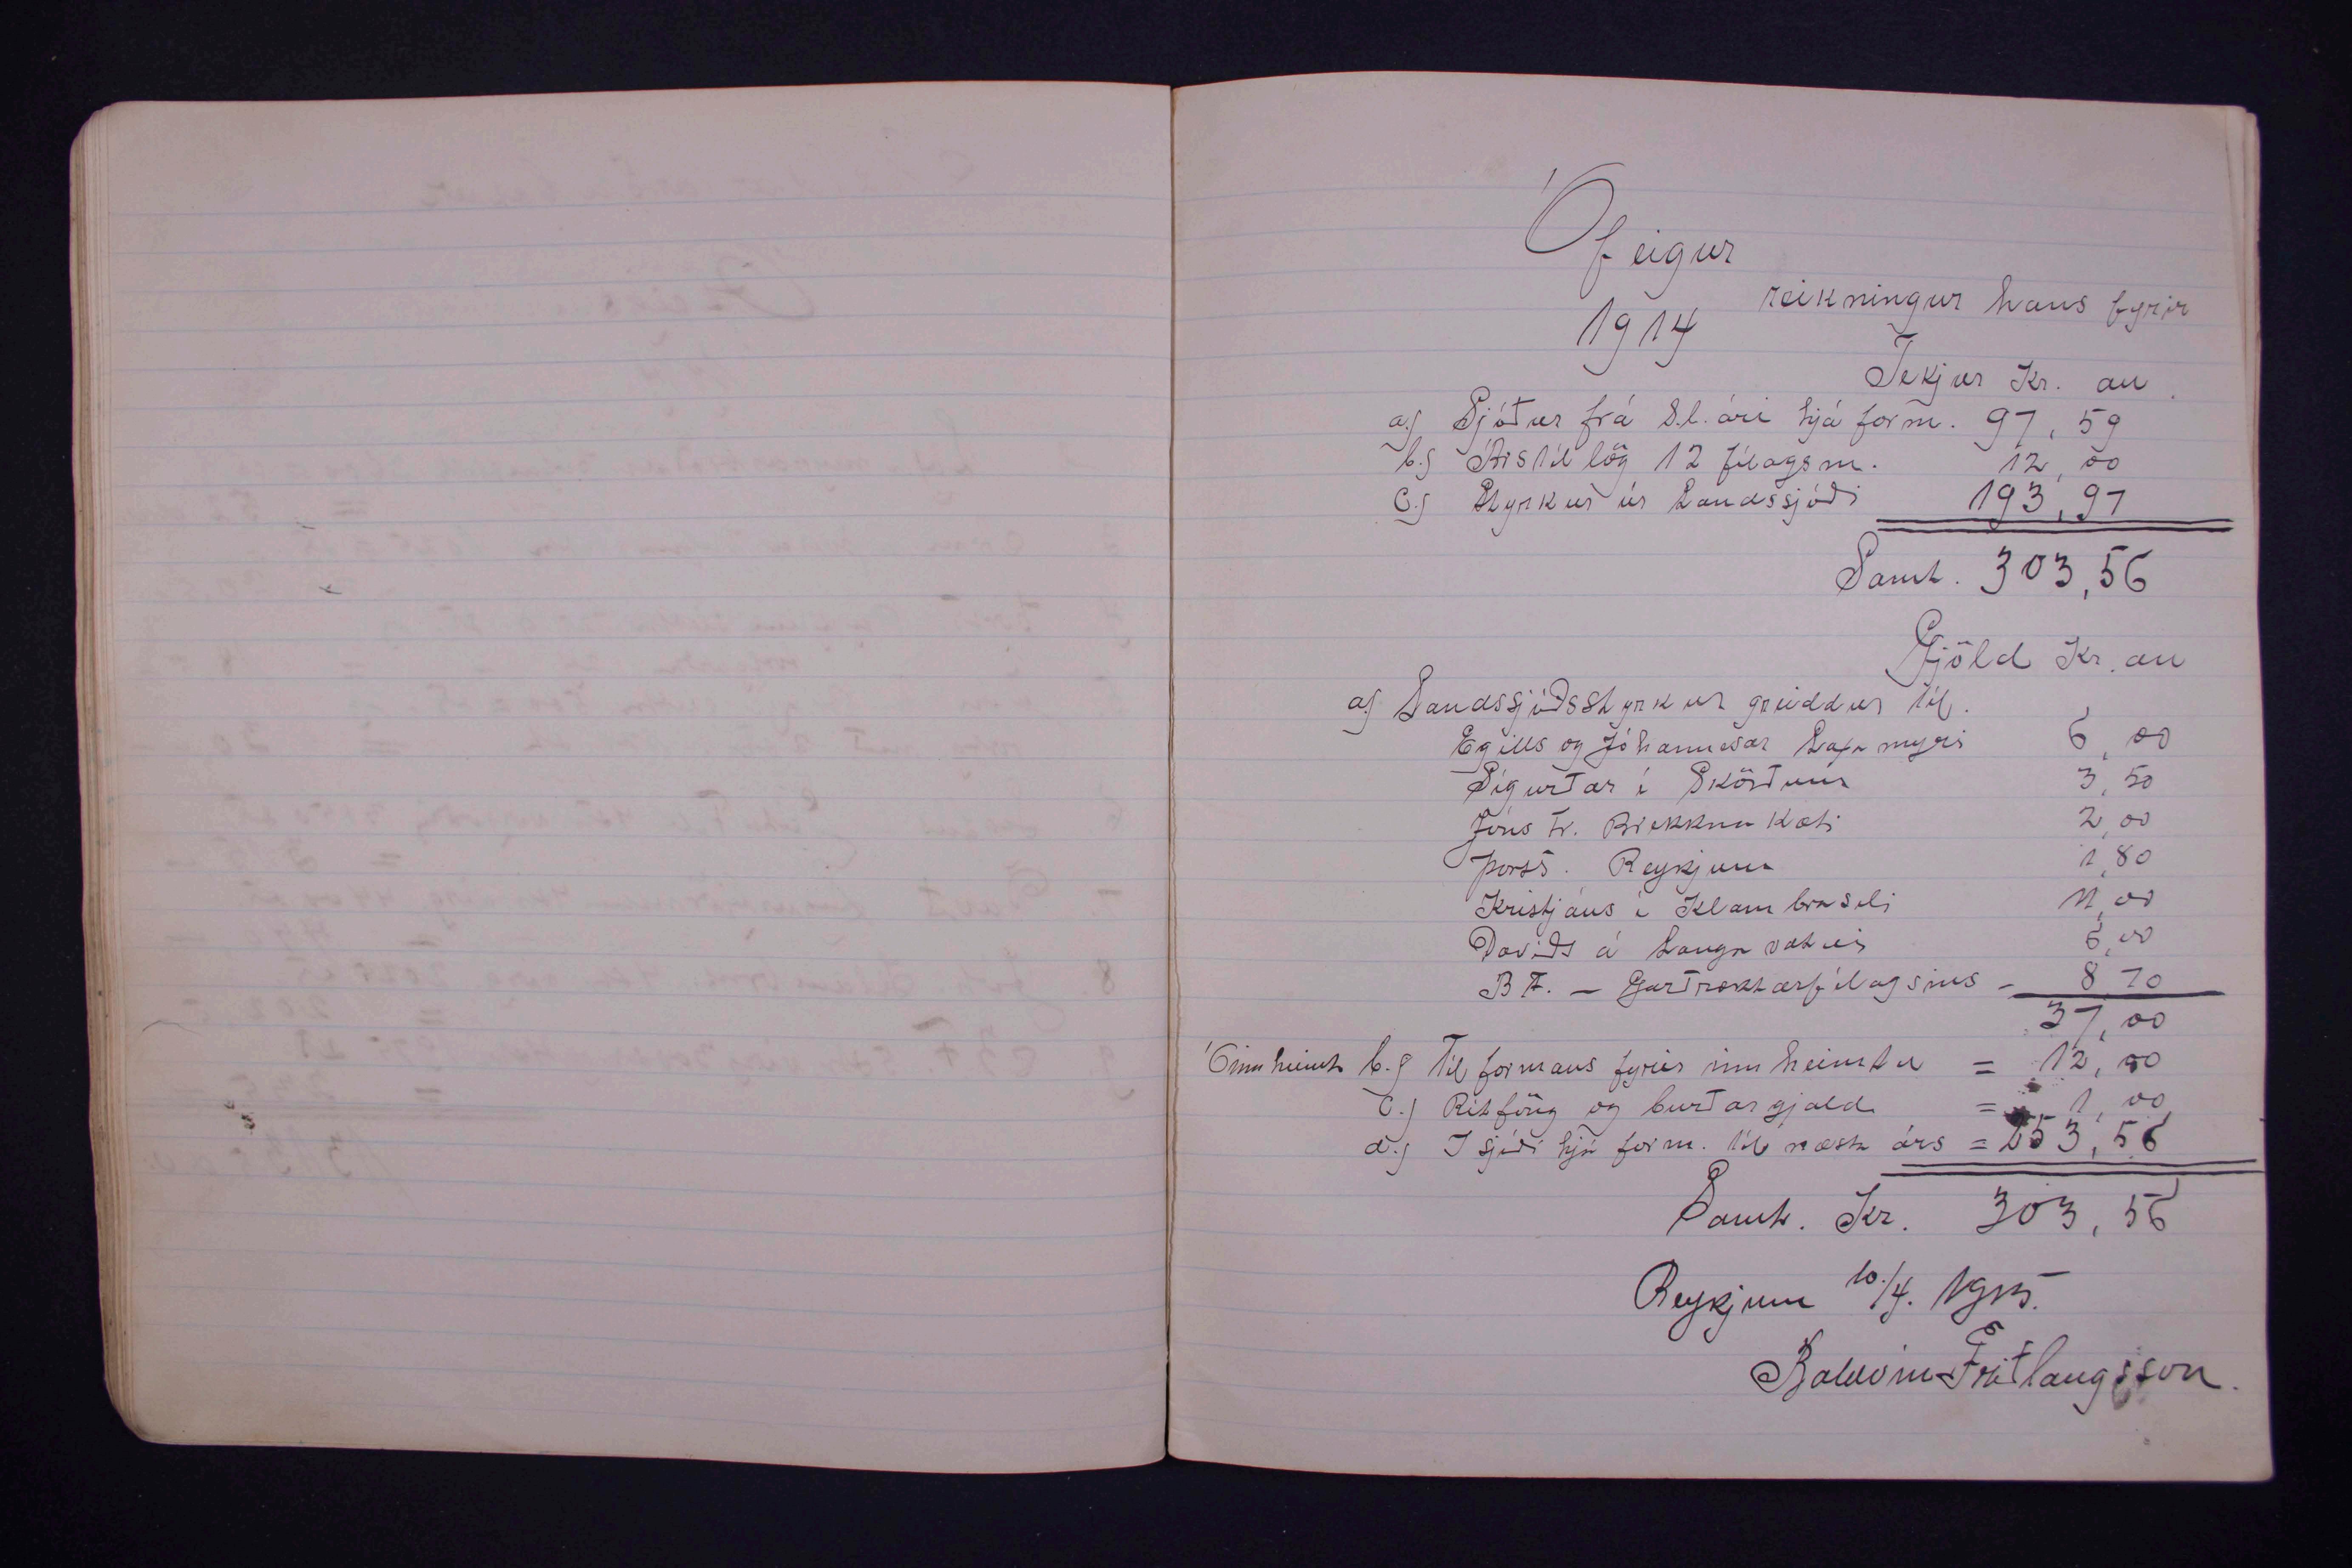 Ófeigur
reikningur hans fyrir
1914
Tekjur Kr. au.
a.) Sjóður frá s.l. ári hjá form. 97,59
b.) Árstillög 12 félagsm. 12,00
c.) Styrkur úr Landssjóði 193,97
Samt. 303,56
Gjöld Kr. au
a.) Landssjóðsstyrkur greiddur til.
Egills og Jóhannesar Laxamyri 6,00
Sigurðar í Skörðum 3,50
Jóns Fr. Brekknakoti 2,00
Þorst. Reykjum 1,80
Kristjáns í Klambraseli 11,00
Daviðs á Langavatni
B F. – Garðræktarfélagsins – 8,70
37,00
Óinnheimt b.) Til formans fyrir innheimtu = 12,00
c.) Ritföng og burðargjald = 1,00
d.) I sjóði hjá form. til næsta árs = 253,56
Samt. Kr. 303,56
Reykjum 10/4. 1915.
Baldvin Friðlaugsson.